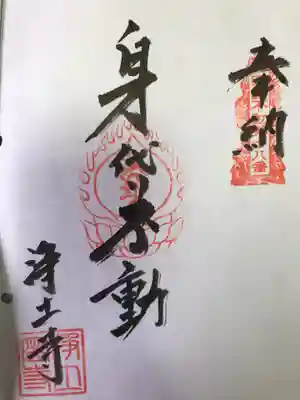 奉納
身代り不動
浄土寺